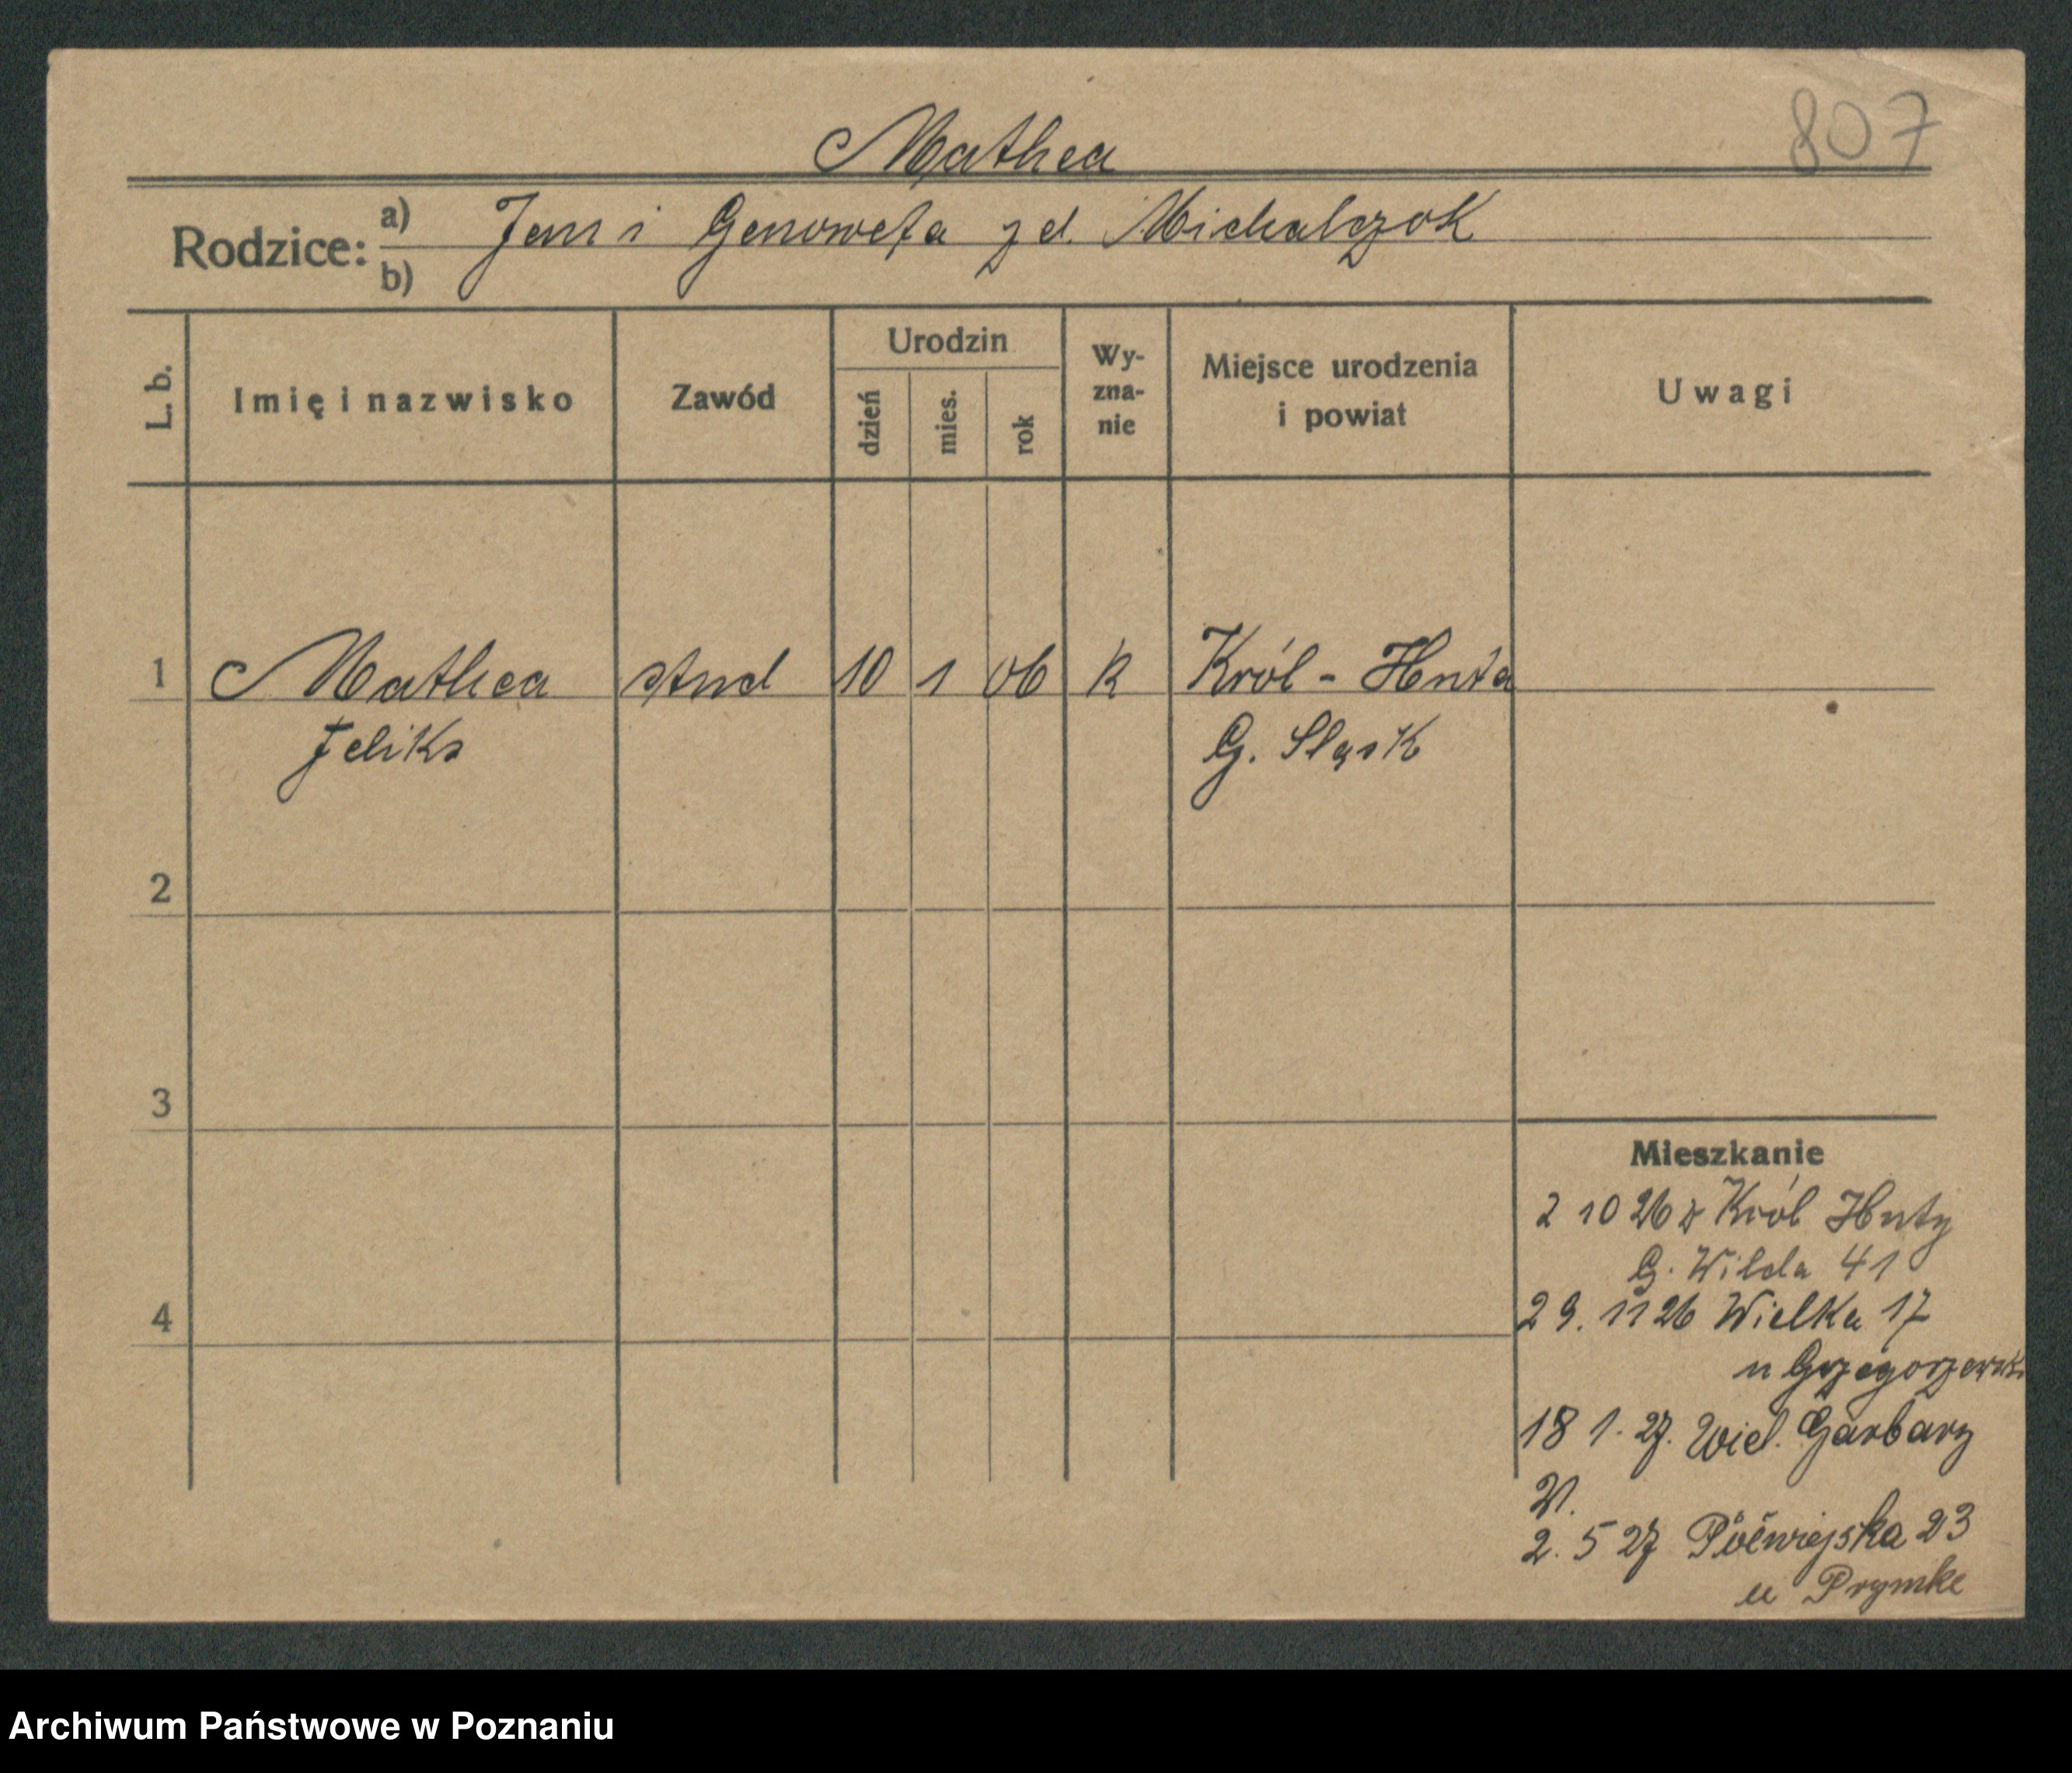 807
Mathea
Rodzice: a) Jan i Genowefa z d. Michalczok
b)
L. b.
Imię i nazwisko
Zawód
Urodzin
dzień
mies.
rok
Wy-
zna-
nie
Miejsce urodzenia
i powiat
Uwagi
1 Mathea stud 10 1 06 k Król - Huta
Feliks G. Sląsk
2
3
4
Mieszkanie
2 10 26 z Król Huty
G. Wilda 41
29. 11 26 Wielka 17
u Grzegorzewski
18 1. 27. Wiel. Garbary
21.
2. 5 27 Półwiejska 23
u Prymke
Archiwum Państwowe w Poznaniu